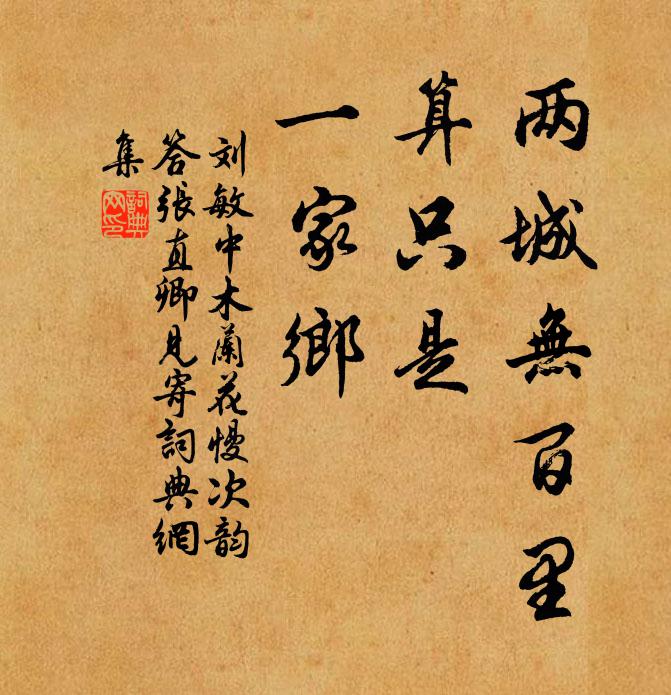 两城無百里
算只是
一家鄉
刘敏中木蘭花慢次韵
答張直卿見寄詞典網
集
詞典
网印